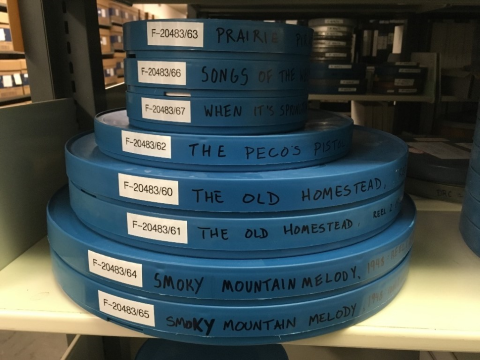 F-20483/63 PRAIRIE
F-20483/66 SONGS OF THE
F-20483/67 WHEN IT'S
F-20483/62 THE PECO'S PIST
F-20483/60 THE OLD HOMESTEAD.
F-20483/61 THE OLD HOMESTEAD.
F-20483/64 SMOKY MOUNTAIN MELODY,
F-20483/65 SMOKY MOUNTAIN MELODY